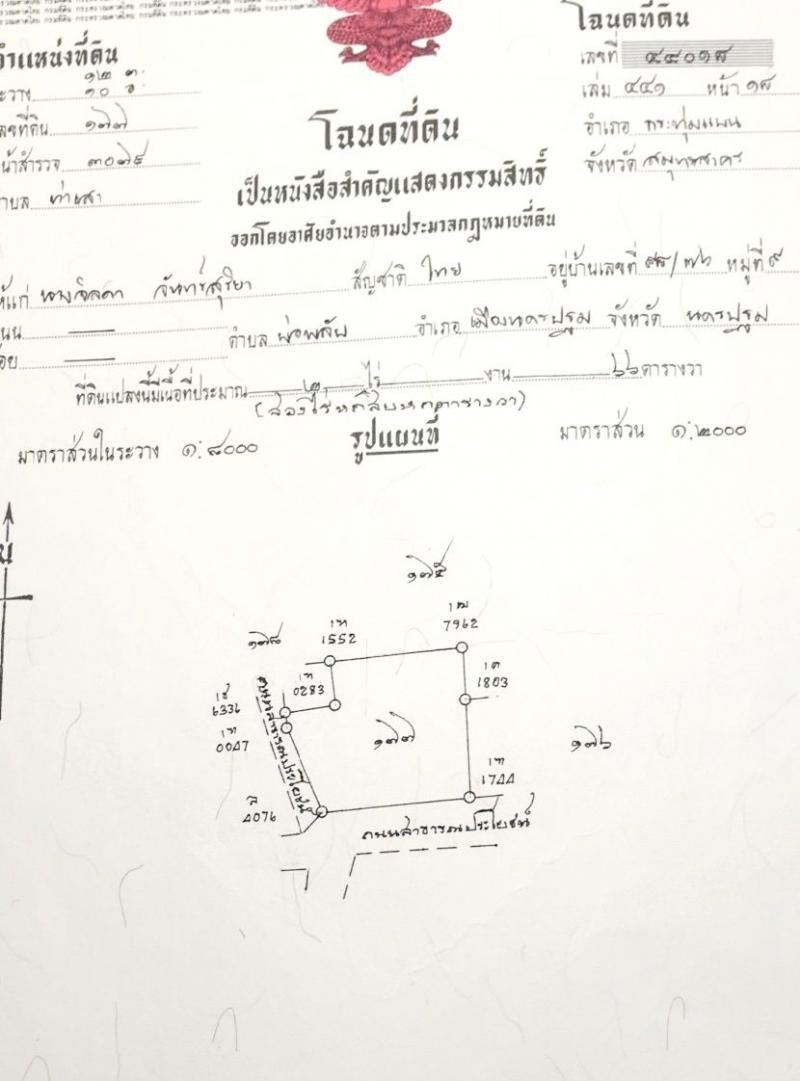 โฉนดที่ดิน
ตำแหน่งที่ดิน
ระวาง ๑๒ ต. ๑๐ อ.
เลขที่ดิน ๑๗๗
หน้าสำรวจ ๓๐๗๕
ตำบล ท่าเสา
เลขที่ ๔๔๐๑๘
เล่ม ๔๔๑ หน้า ๑๘
อำเภอ กระทุ่มแบน
จังหวัด สมุทรสาคร
โฉนดที่ดิน
เป็นหนังสือสำคัญแสดงกรรมสิทธิ์
ออกโดยอาศัยอำนาจตามประมวลกฎหมายที่ดิน
ให้แก่ จันทร์สุริยา สัญชาติ ไทย อยู่บ้านเลขที่ /๗๖ หมู่ที่ ๙
ถนน —
ตำบล บ่อพลับ อำเภอ เมืองนครปฐม จังหวัด นครปฐม
ซอย —
ที่ดินแปลงนี้มีเนื้อที่ประมาณ ๒ ไร่ งาน ๖๖ ตารางวา
(สองไร่หกสิบหกตารางวา)
มาตราส่วนในระวาง ๑:๘๐๐๐
รูปแผนที่
มาตราส่วน ๑:๒๐๐๐
น
๑๗๕
๑๗๘
1552
7962
0283
1803
6336
0047
ถนนสาธารณประโยชน์
๑๗๗
๑๗๖
1744
4076
ถนนสาธารณประโยชน์